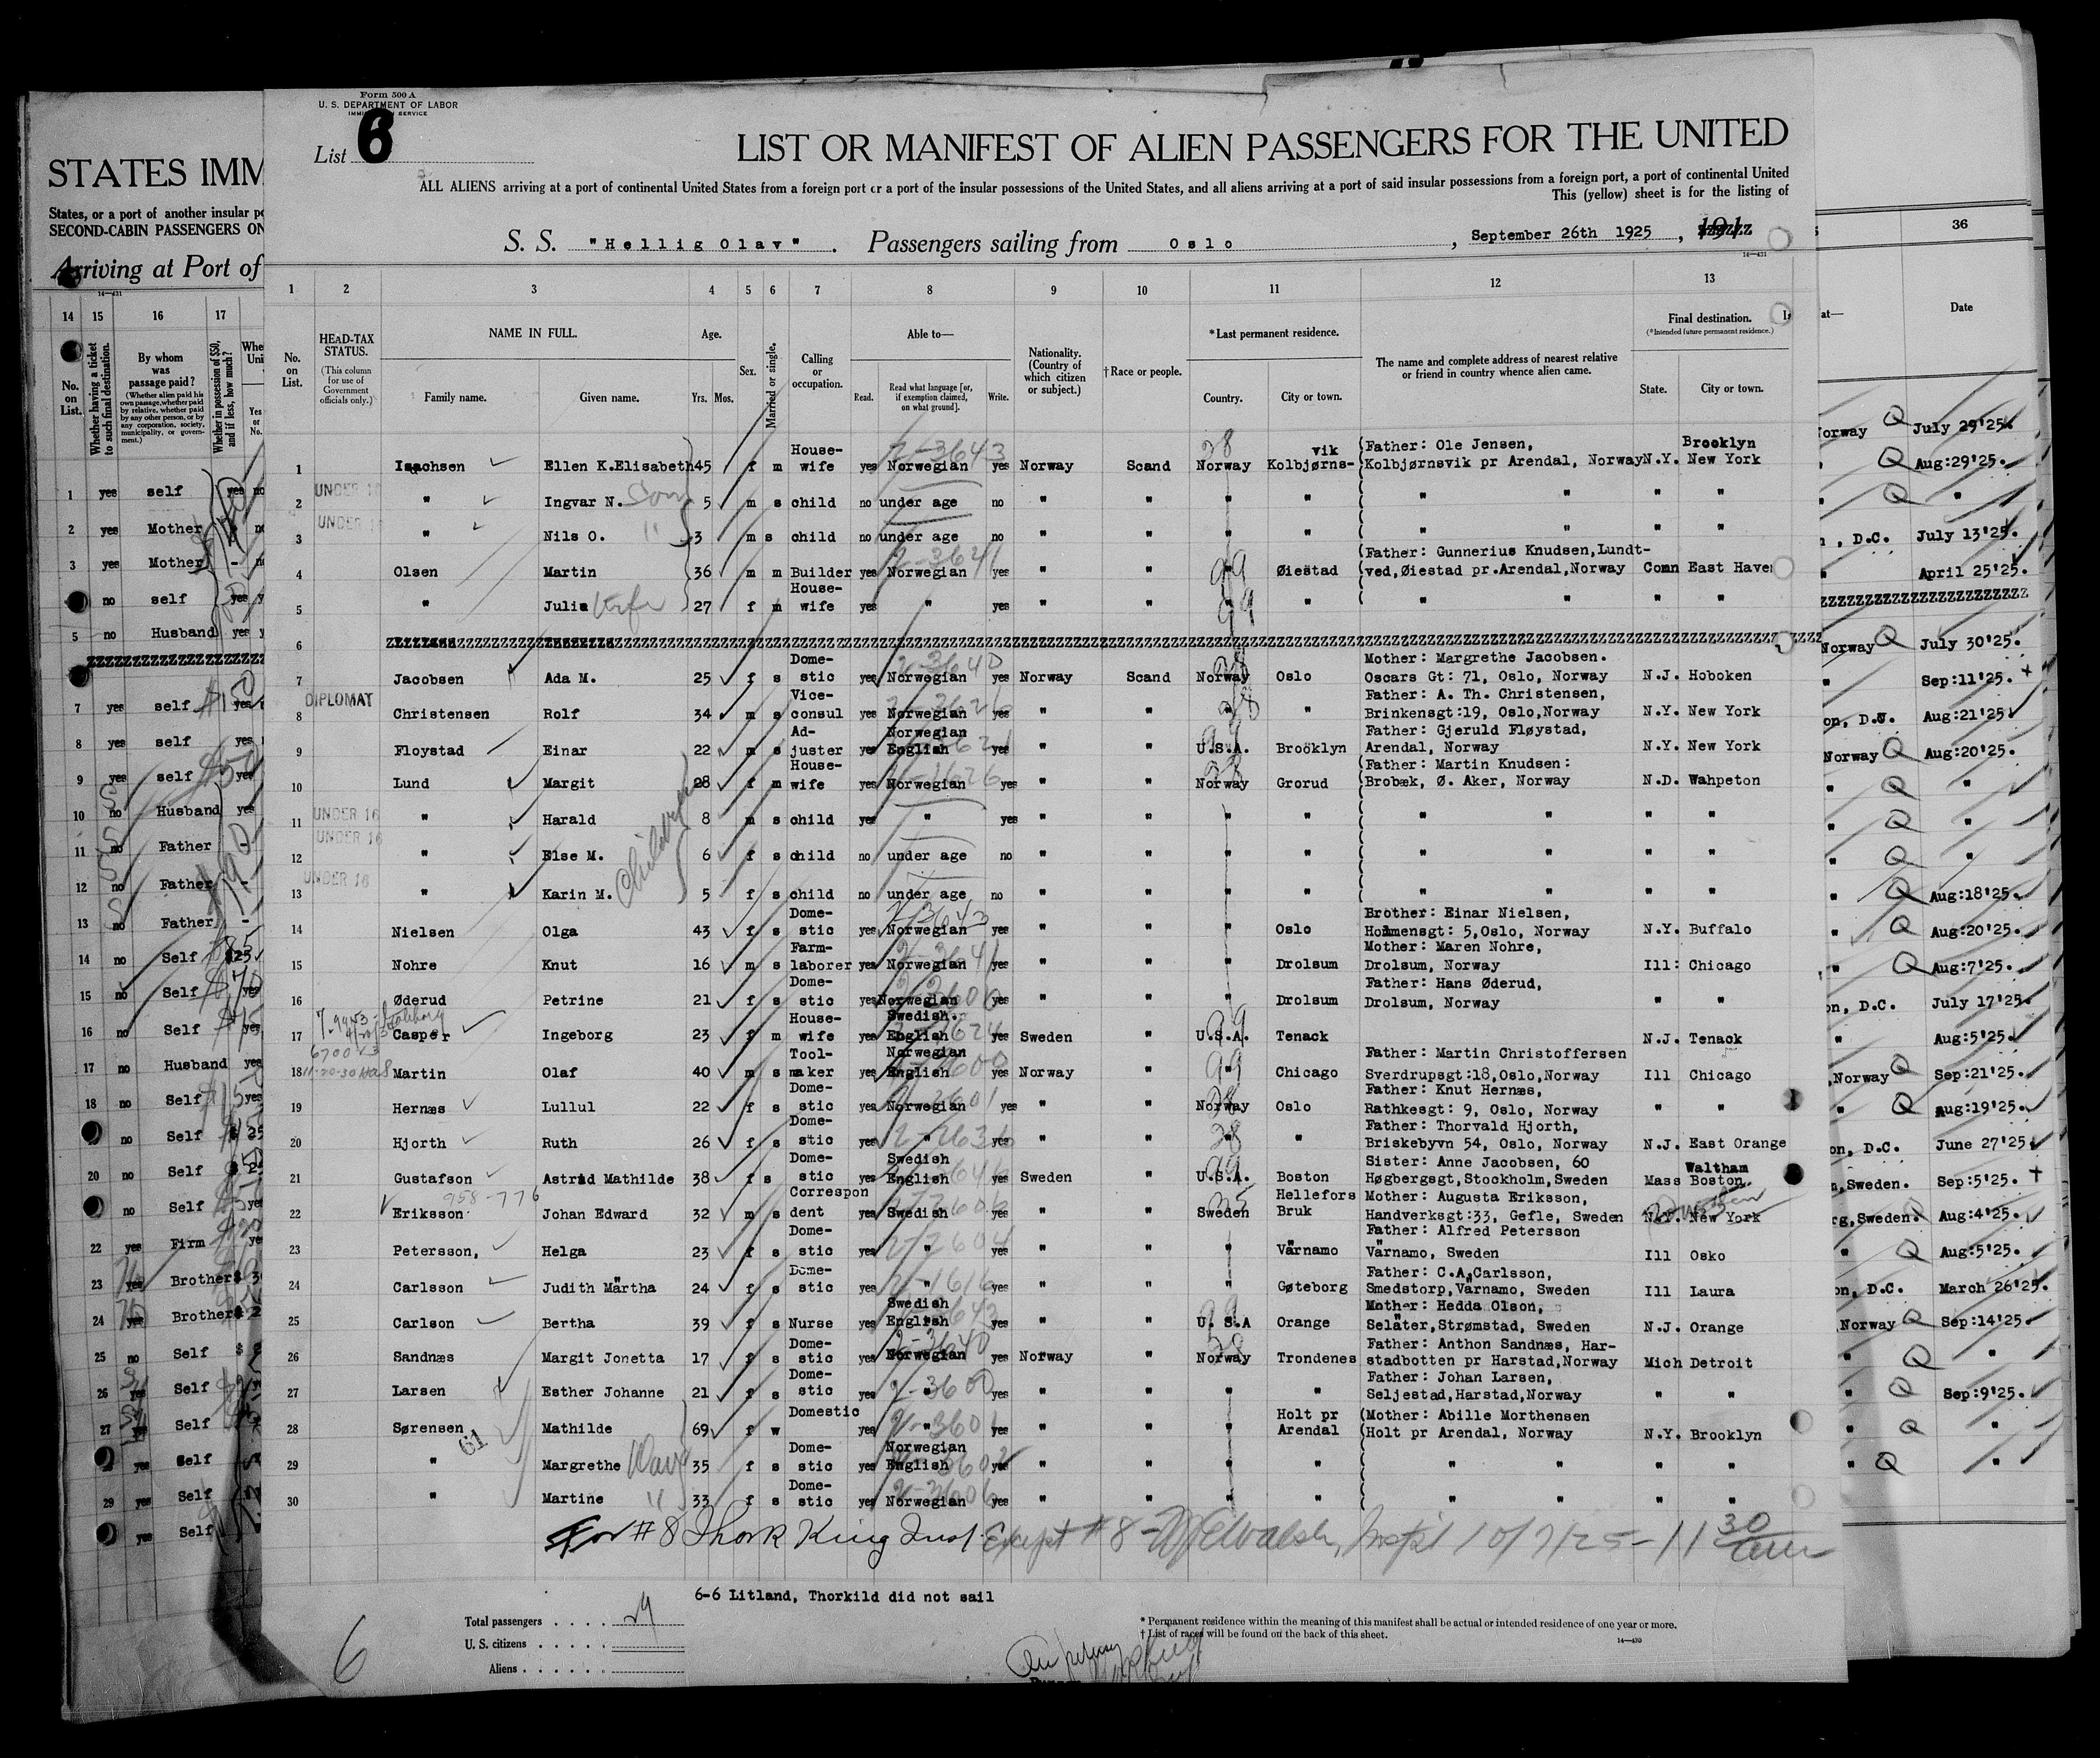 Form 500 A
U. S. DEPARTMENT OF LABOR
SERVICE
List 6
LIST OR MANIFEST OF ALIEN PASSENGERS FOR THE UNITED
ALL ALIENS arriving at a port of continental United States from a foreign port or a port of the insular possessions of the United States, and all aliens arriving at a port of said insular possessions from a foreign port, a port of continental United
This (yellow) sheet is for the listing of
S. S. "Hellig Olav". Passengers sailing from Oslo, September 26th 1925,
16—431
1 2 3 4 5 6 7 8 9 10 11 12 13
No. on List.
HEAD-TAX STATUS.
(This column for use of Government officials only.)
NAME IN FULL.
Family name. Given name.
Age.
Yrs. Mos.
Sex.
Married or single.
Calling or occupation.
Able to—
Read. Read what language [or, if exemption claimed, on what ground]. Write.
Nationality. (Country of which citizen or subject.)
†Race or people.
*Last permanent residence.
Country. City or town.
The name and complete address of nearest relative or friend in country whence alien came.
Final destination.
(*Intended future permanent residence.)
State. City or town.
1 Isachsen Ellen K.Elisabeth 45 f m House-wife yes Norwegian yes Norway Scand Norway Kolbjørns-vik Father: Ole Jensen, Kolbjørnsvik pr Arendal, Norway N.Y. Brooklyn New York
2 UNDER 16 " Ingvar N. Son 5 m s child no under age no " " " " " " " "
3 UNDER 16 " Nils O. " 3 m s child no under age no " " " " " " " "
4 Olsen Martin 36 m m Builder yes Norwegian yes " " " Øiestad Father: Gunnerius Knudsen, Lundt-ved, Øiestad pr. Arendal, Norway Conn East Haven
5 " Julia Wife 27 f m House-wife yes " yes " " " " " " " "
6
7 Jacobsen Ada M. 25 f s Dome-stic yes Norwegian yes Norway Scand Norway Oslo Mother: Margrethe Jacobsen. Oscars Gt: 71, Oslo, Norway N.J. Hoboken
8 DIPLOMAT Christensen Rolf 34 m s Vice-consul yes Norwegian yes " " " " Father: A. Th. Christensen, Brinkensgt:19, Oslo, Norway N.Y. New York
9 Floystad Einar 22 m s Ad-juster yes Norwegian English yes " " U.S.A. Brooklyn Father: Gjeruld Fløystad, Arendal, Norway N.Y. New York
10 Lund Margit 28 f m House-wife yes Norwegian yes " " Norway Grorud Father: Martin Knudsen: Brobæk, Ø. Aker, Norway N.D. Wahpeton
11 UNDER 16 " Harald 8 m s child yes " yes " " " " " " " "
12 UNDER 16 " Else M. 6 f s child no under age no " " " " " " " "
13 UNDER 16 " Karin M. 5 f s child no under age no " " " " " " " "
14 Nielsen Olga 43 f s Dome-stic yes Norwegian yes " " " Oslo Brother: Einar Nielsen, Holmensgt: 5, Oslo, Norway N.Y. Buffalo
15 Nohre Knut 16 m s Farm-laborer yes Norwegian yes " " " Drolsum Mother: Maren Nohre, Drolsum, Norway Ill: Chicago
16 Øderud Petrine 21 f s Dome-stic yes Norwegian yes " " " Drolsum Father: Hans Øderud, Drolsum, Norway " "
17 Casper Ingeborg 23 f m House-wife yes Swedish. English yes Sweden " U.S.A. Tenack N.J. Tenack
18 Martin Olaf 40 m s Tool-maker yes Norwegian English yes Norway " " Chicago Father: Martin Christoffersen Sverdrupsgt:18, Oslo, Norway Ill Chicago
19 Hernæs Lullul 22 f s Dome-stic yes Norwegian yes " " Norway Oslo Father: Knut Hernæs, Rathkesgt: 9, Oslo, Norway " "
20 Hjorth Ruth 26 f s Dome-stic yes " yes " " " " Father: Thorvald Hjorth, Briskebyvn 54, Oslo, Norway N.J. East Orange
21 Gustafson Astrid Mathilde 38 f s Dome-stic yes Swedish English yes Sweden " U.S.A. Boston Sister: Anne Jacobsen, 60 Høgbergsgt, Stockholm, Sweden Mass Waltham Boston.
22 Eriksson Johan Edward 32 m s Correspon dent yes Swedish yes " " Sweden Hellefors Bruk Mother: Augusta Eriksson, Handverksgt:33, Gefle, Sweden N.Y. New York
23 Petersson, Helga 23 f s Dome-stic yes " yes " " " Värnamo Father: Alfred Petersson Värnamo, Sweden Ill Osko
24 Carlsson Judith Märtha 24 f s Dome-stic yes " yes " " " Gøteborg Father: C.A. Carlsson, Smedstorp, Värnamo, Sweden Ill Laura
25 Carlson Bertha 39 f s Nurse yes Swedish English yes " " U.S.A Orange Mother: Hedda Olson, Seläter, Strømstad, Sweden N.J. Orange
26 Sandnæs Margit Jonetta 17 f s Dome-stic yes Norwegian yes Norway " Norway Trondenes Father: Anthon Sandnæs, Har-stadbotten pr Harstad, Norway Mich Detroit
27 Larsen Esther Johanne 21 f s Dome-stic yes " yes " " " " Father: Johan Larsen, Seljestad, Harstad, Norway " "
28 Sørensen Mathilde 69 f w Domestic yes " yes " " " Holt pr Arendal Mother: Abille Morthensen Holt pr Arendal, Norway N.Y. Brooklyn
29 " Margrethe 35 f s Dome-stic yes Norwegian English yes " " " " " " " "
30 " Martine 33 f s Dome-stic yes Norwegian yes " " " " " " " "
For #8 King Insp. Except #8 10/7/25 - 11 30 am
6-6 Litland, Thorkild did not sail
Total passengers . . . . 29
U. S. citizens . . . . .
Aliens . . . . . .
6
* Permanent residence within the meaning of this manifest shall be actual or intended residence of one year or more.
† List of races will be found on the back of this sheet.
14—430
STATES IMM
States, or a port of another insular
SECOND-CABIN PASSENGERS ON
Arriving at Port of
14 15 16 17
No. on List.
Whether having a ticket to such final destination.
By whom was passage paid?
(Whether alien paid his own passage, whether paid by relative, whether paid by any other person, or by any corporation, society, municipality, or government.)
Whether in possession of $50, and if less, how much?
1 yes self yes
2 yes Mother
3 yes Mother -
no self yes
5 no Husband yes
7 yes self yes
8 yes self yes
9 yes self yes
10 no Husband yes
11 no Father -
12 no Father -
13 no Father -
14 no Self $25
15 no Self yes
16 no Self yes
17 no Husband yes
18 no Self yes
no Self $ 25
20 no Self
no Self yes
22 yes Firm
23 yes Brother
24 yes Brother
25 no Self
26 yes Self
27 yes Self
yes Self
29 yes Self
yes Self
36
Date
Norway Q July 29'25.
Q Aug:29'25.
Q "
D.C. July 13'25.
April 25'25.
Norway Q July 30'25.
" Sep:11'25.
on, D.C. Aug:21'25
Norway Q Aug:20'25.
" Q "
" Q "
" Q "
" Q Aug:18'25.
" Q Aug:20'25.
" Q Aug:7'25.
on, D.C. July 17'25.
" Aug:5'25.
Norway Q Sep:21'25.
" Q Aug:19'25.
on, D.C. June 27'25.
Sweden. Sep:5'25.
rg, Sweden. Aug:4'25.
" Q Aug:5'25.
on, D.C. March 26'25.
Norway Q Sep:14'25.
" Q "
" Q Sep:9'25.
" Q "
" Q "